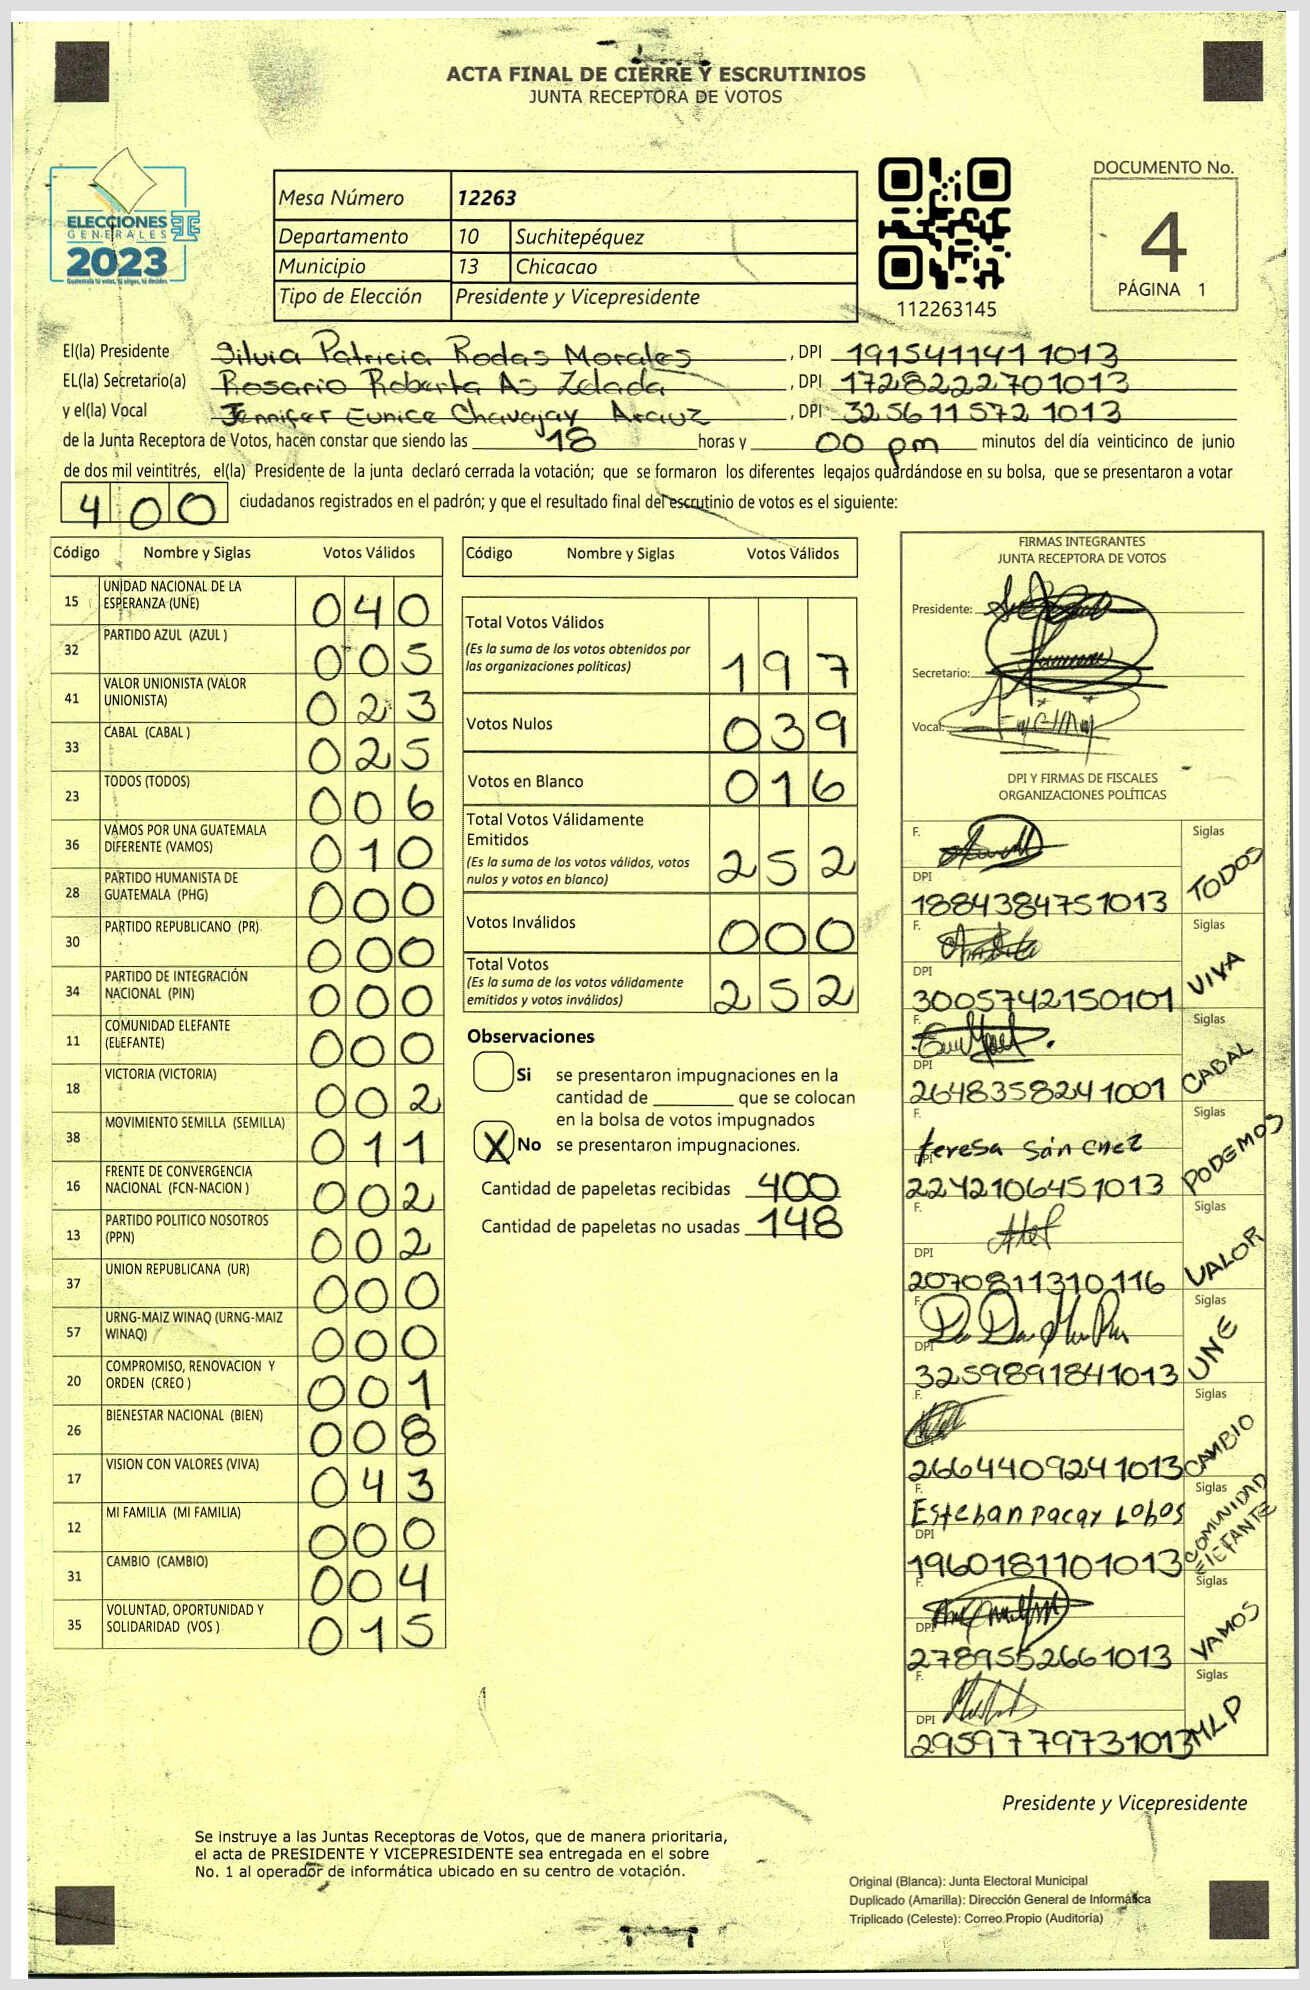 ACTA FINAL DE CIERRE Y ESCRUTINIOS
JUNTA RECEPTORA DE VOTOS
ELECCIONES
GENERALES
2023
Guatemala tú votas, tú eliges, tú decides.
Mesa Número 12263
Departamento 10 Suchitepéquez
Municipio 13 Chicacao
Tipo de Elección Presidente y Vicepresidente
112263145
DOCUMENTO No.
4
PÁGINA 1
El(la) Presidente Silvia Patricia Rodas Morales, DPI 1915411411013
EL(la) Secretario(a) Rosario Roberta As Zelada, DPI 1728222701013
y el(la) Vocal Jennifer Eunice Chavajay Arauz, DPI 3256115721013
de la Junta Receptora de Votos, hacen constar que siendo las 18 horas y 00 pm minutos del día veinticinco de junio
de dos mil veintitrés, el(la) Presidente de la junta declaró cerrada la votación; que se formaron los diferentes legajos guardándose en su bolsa, que se presentaron a votar
400 ciudadanos registrados en el padrón; y que el resultado final del escrutinio de votos es el siguiente:
Código Nombre y Siglas Votos Válidos
15 UNIDAD NACIONAL DE LA ESPERANZA (UNE) 040
32 PARTIDO AZUL (AZUL ) 005
41 VALOR UNIONISTA (VALOR UNIONISTA) 023
33 CABAL (CABAL ) 025
23 TODOS (TODOS) 006
36 VAMOS POR UNA GUATEMALA DIFERENTE (VAMOS) 010
28 PARTIDO HUMANISTA DE GUATEMALA (PHG) 000
30 PARTIDO REPUBLICANO (PR) 000
34 PARTIDO DE INTEGRACIÓN NACIONAL (PIN) 000
11 COMUNIDAD ELEFANTE (ELEFANTE) 000
18 VICTORIA (VICTORIA) 002
38 MOVIMIENTO SEMILLA (SEMILLA) 011
16 FRENTE DE CONVERGENCIA NACIONAL (FCN-NACION ) 002
13 PARTIDO POLITICO NOSOTROS (PPN) 002
37 UNION REPUBLICANA (UR) 000
57 URNG-MAIZ WINAQ (URNG-MAIZ WINAQ) 000
20 COMPROMISO, RENOVACION Y ORDEN (CREO ) 001
26 BIENESTAR NACIONAL (BIEN) 008
17 VISION CON VALORES (VIVA) 043
12 MI FAMILIA (MI FAMILIA) 000
31 CAMBIO (CAMBIO) 004
35 VOLUNTAD, OPORTUNIDAD Y SOLIDARIDAD (VOS ) 015
Código Nombre y Siglas Votos Válidos
Total Votos Válidos 197
(Es la suma de los votos obtenidos por
las organizaciones políticas)
Votos Nulos 039
Votos en Blanco 016
Total Votos Válidamente
Emitidos 252
(Es la suma de los votos válidos, votos
nulos y votos en blanco)
Votos Inválidos 000
Total Votos 252
(Es la suma de los votos válidamente
emitidos y votos inválidos)
Observaciones
Si se presentaron impugnaciones en la
cantidad de ________ que se colocan
en la bolsa de votos impugnados
X No se presentaron impugnaciones.
Cantidad de papeletas recibidas 400
Cantidad de papeletas no usadas 148
FIRMAS INTEGRANTES
JUNTA RECEPTORA DE VOTOS
Presidente:
Secretario:
Vocal:
DPI Y FIRMAS DE FISCALES
ORGANIZACIONES POLÍTICAS
F. Siglas
DPI 1884384751013 TODOS
F. Siglas
DPI 3005742150101 VIVA
F. Siglas
DPI 2648358241001 CABAL
F. teresa sánchez Siglas
DPI 2242106451013 PODEMOS
F. Siglas
DPI 2070811310116 VALOR
F. Siglas
DPI 3259891841013 UNE
F. Siglas
DPI 2664409241013 CAMBIO
F. Esteban pacay Lobos Siglas
DPI 1960181101013 COMUNIDAD ElEFANTE
F. Siglas
DPI 2789552661013 VAMOS
F. Siglas
DPI 2959779731013 MLP
Presidente y Vicepresidente
Se instruye a las Juntas Receptoras de Votos, que de manera prioritaria,
el acta de PRESIDENTE Y VICEPRESIDENTE sea entregada en el sobre
No. 1 al operador de informática ubicado en su centro de votación.
Original (Blanca): Junta Electoral Municipal
Duplicado (Amarilla): Dirección General de Informática
Triplicado (Celeste): Correo Propio (Auditoría)